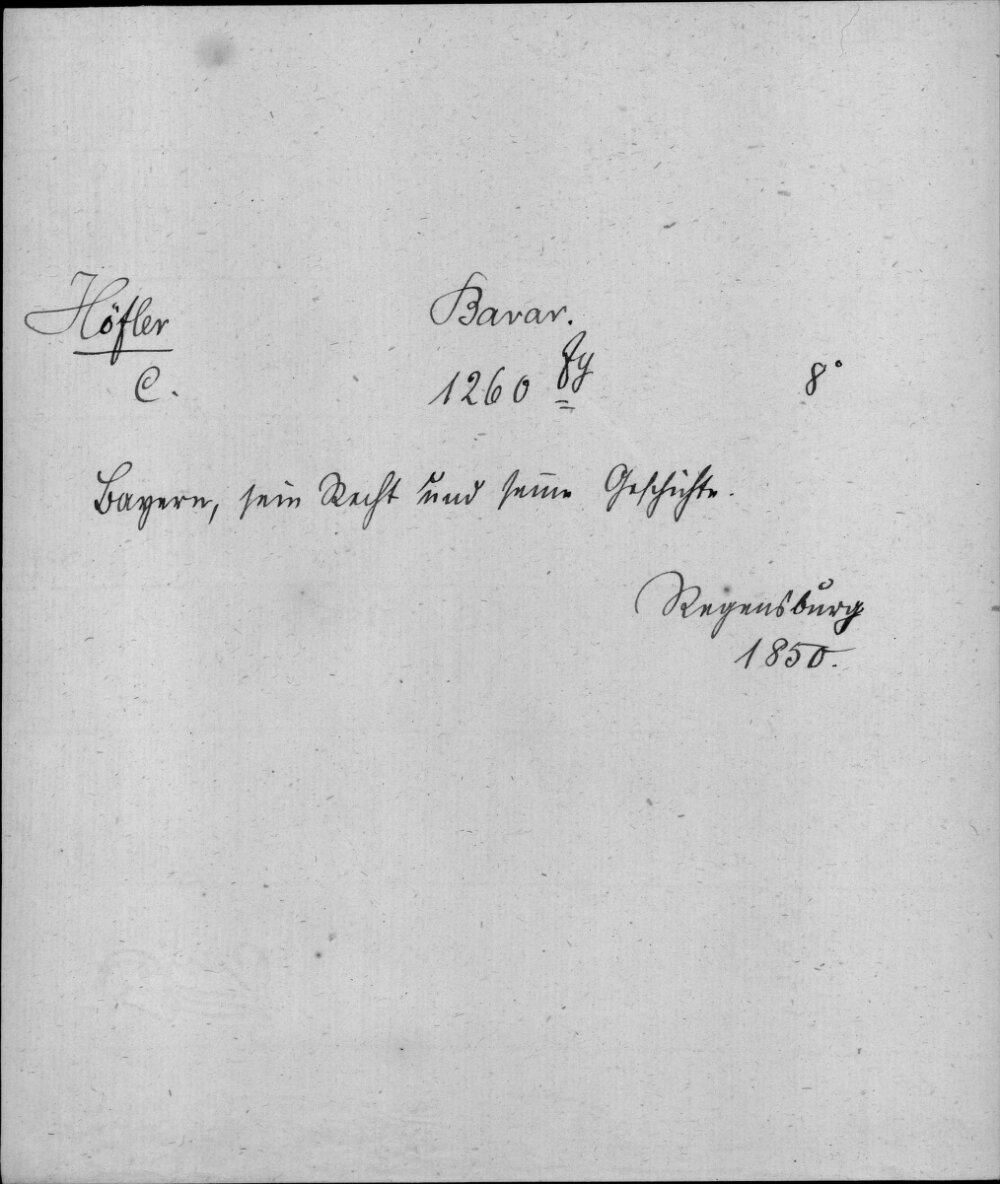 Höfler Bavar.
C. 1260 fg 8°
Bayern, sein Recht und seine Geschichte.
Regensburg
1850.